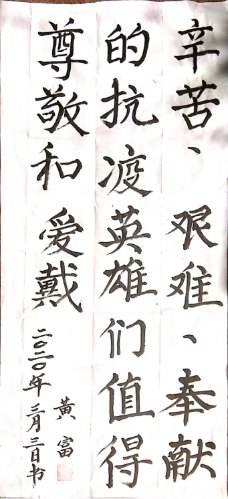 辛苦、艰难、奉献
的抗疫英雄们值得
尊敬和爱戴
二〇二〇年三月三日书
黄富